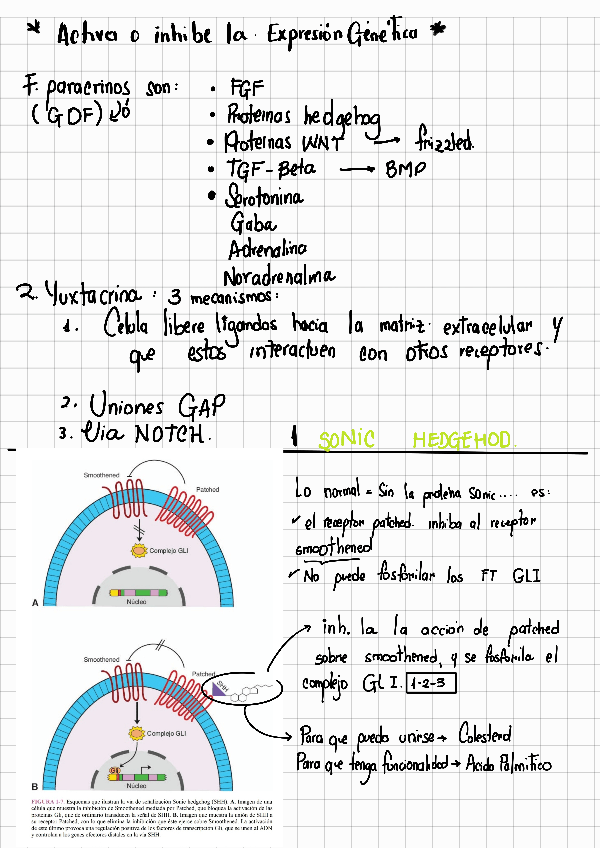 * Activa o inhibe la Expresión Genética *
F. paracrinos son:
(GDF) ó
• FGF
• Proteinas hedgehog
• Proteinas WNT → frizzled.
• TGF-Beta → BMP
• Serotonina
Gaba
Adrenalina
Noradrenalina
2. Yuxtacrina: 3 mecanismos:
1. Célula libere ligandos hacia la matriz extracelular y
que estos interactuen con otros receptores.
2. Uniones GAP
3. Via NOTCH.
1 SONIC HEDGEHOD
Smoothened
Patched
Complejo GLI
Núcleo
A
Lo normal = Sin la proteina sonic.... es:
✓ el receptor patched. inhiba al receptor
smoothened
✓ No puede fosforilar los FT GLI
Smoothened
Patched
SHH
Complejo GLI
Gli
Núcleo
B
→ inh. la la acción de patched
sobre smoothened, y se fosforila el
complejo GLI. 1-2-3
→ Para que pueda unirse → Colesterol
Para que tenga funcionalidad → Acido Palmitico
FIGURA 1-7. Esquemas que ilustran la vía de señalización Sonic hedgehog (SHH). A. Imagen de una
célula que muestra la inhibición de Smoothened mediada por Patched, que bloquea la activación de las
proteínas Gli, que de ordinario transducen la señal de SHH. B. Imagen que muestra la unión de SHH a
su receptor Patched, con lo que elimina la inhibición que éste ejerce sobre Smoothened. La activación
de este último provoca una regulación positiva de los factores de transcripción Gli, que se unen al ADN
y controlan a los genes efectores distales en la vía SHH